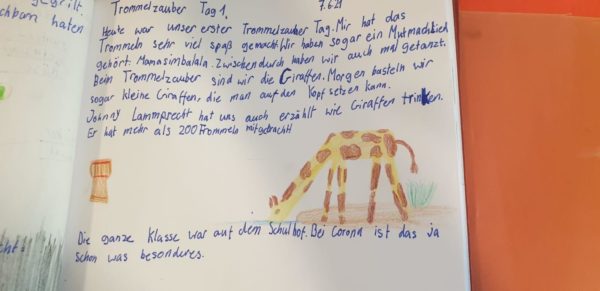 gegrillt
chbarn haten
Trommelzauber Tag 1. 7.6.21
Heute war unser erster Trommelzauber Tag. Mir hat das
Trommeln sehr viel spaß gemacht. Wir haben sogar ein Mutmachlied
gehört: Mamasimbalala. Zwischendurch haben wir auch mal getanzt.
Beim Trommelzauber sind wir die Giraffen. Morgen basteln wir
sogar kleine Giraffen, die man auf den Kopf setzen kann.
Johnny Lammprecht hat uns auch erzählt wie Giraffen trinken.
Er hat mehr als 200 Trommeln mitgebracht
Die ganze Klasse war auf dem Schulhof. Bei Corona ist das ja
schon was besonderes.